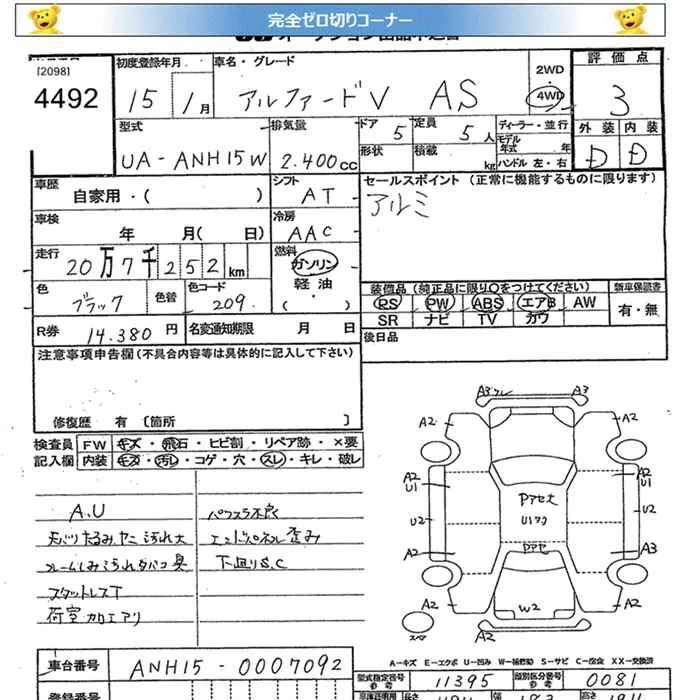 完全ゼロ切りコーナー
[2098]
4492
初度登録年月
15 1月
車名・グレード
アルファードV AS
2WD
4WD
評価点
3
外装 内装
D D
型式
UA-ANH15W
排気量
2.400cc
ドア 5
定員 5人
形状
積載 kg
ディーラー・並行
モデル年式 年
ハンドル 左・右
車歴
自家用・( )
シフト
AT
セールスポイント (正常に機能するものに限ります)
アルミ
車検
年 月( 日)
冷房
AAC
走行
20万7千252km
燃料
ガソリン
軽油
( )
色
ブラック
色替
色コード
209
装備品 (純正品に限り○をつけてください)
PS PW ABS エアB AW
SR ナビ TV カワ
新車保証書
有・無
R券 14.380円
名変通知期限 月 日
後日品
注意事項申告欄 (不具合内容等は具体的に記入して下さい)
修復歴 有 〔箇所 〕
検査員記入欄
FW キズ・飛石・ヒビ割・リペア跡・×要
内装 キズ・汚れ・コゲ・穴・スレ・キレ・破レ
A.U
天バリたるみヤニ汚れ大
シートしみ汚れタバコ臭
スタットレスT
荷室カロエアリ
パワスラ不良
エンドパネル歪み
下廻りS.C
A3 A3
A2 A2
A2 U1 A2
U2 U2
A2 A3
A2 A2
Pアセ大
Pアセ
W2
スペア
A-キズ E-エクボ U-凹み W-補修跡 S-サビ C-腐食 XX-交換済
車台番号
ANH15-0007092
型式指定番号
11395
類別区分番号
0081
登録番号